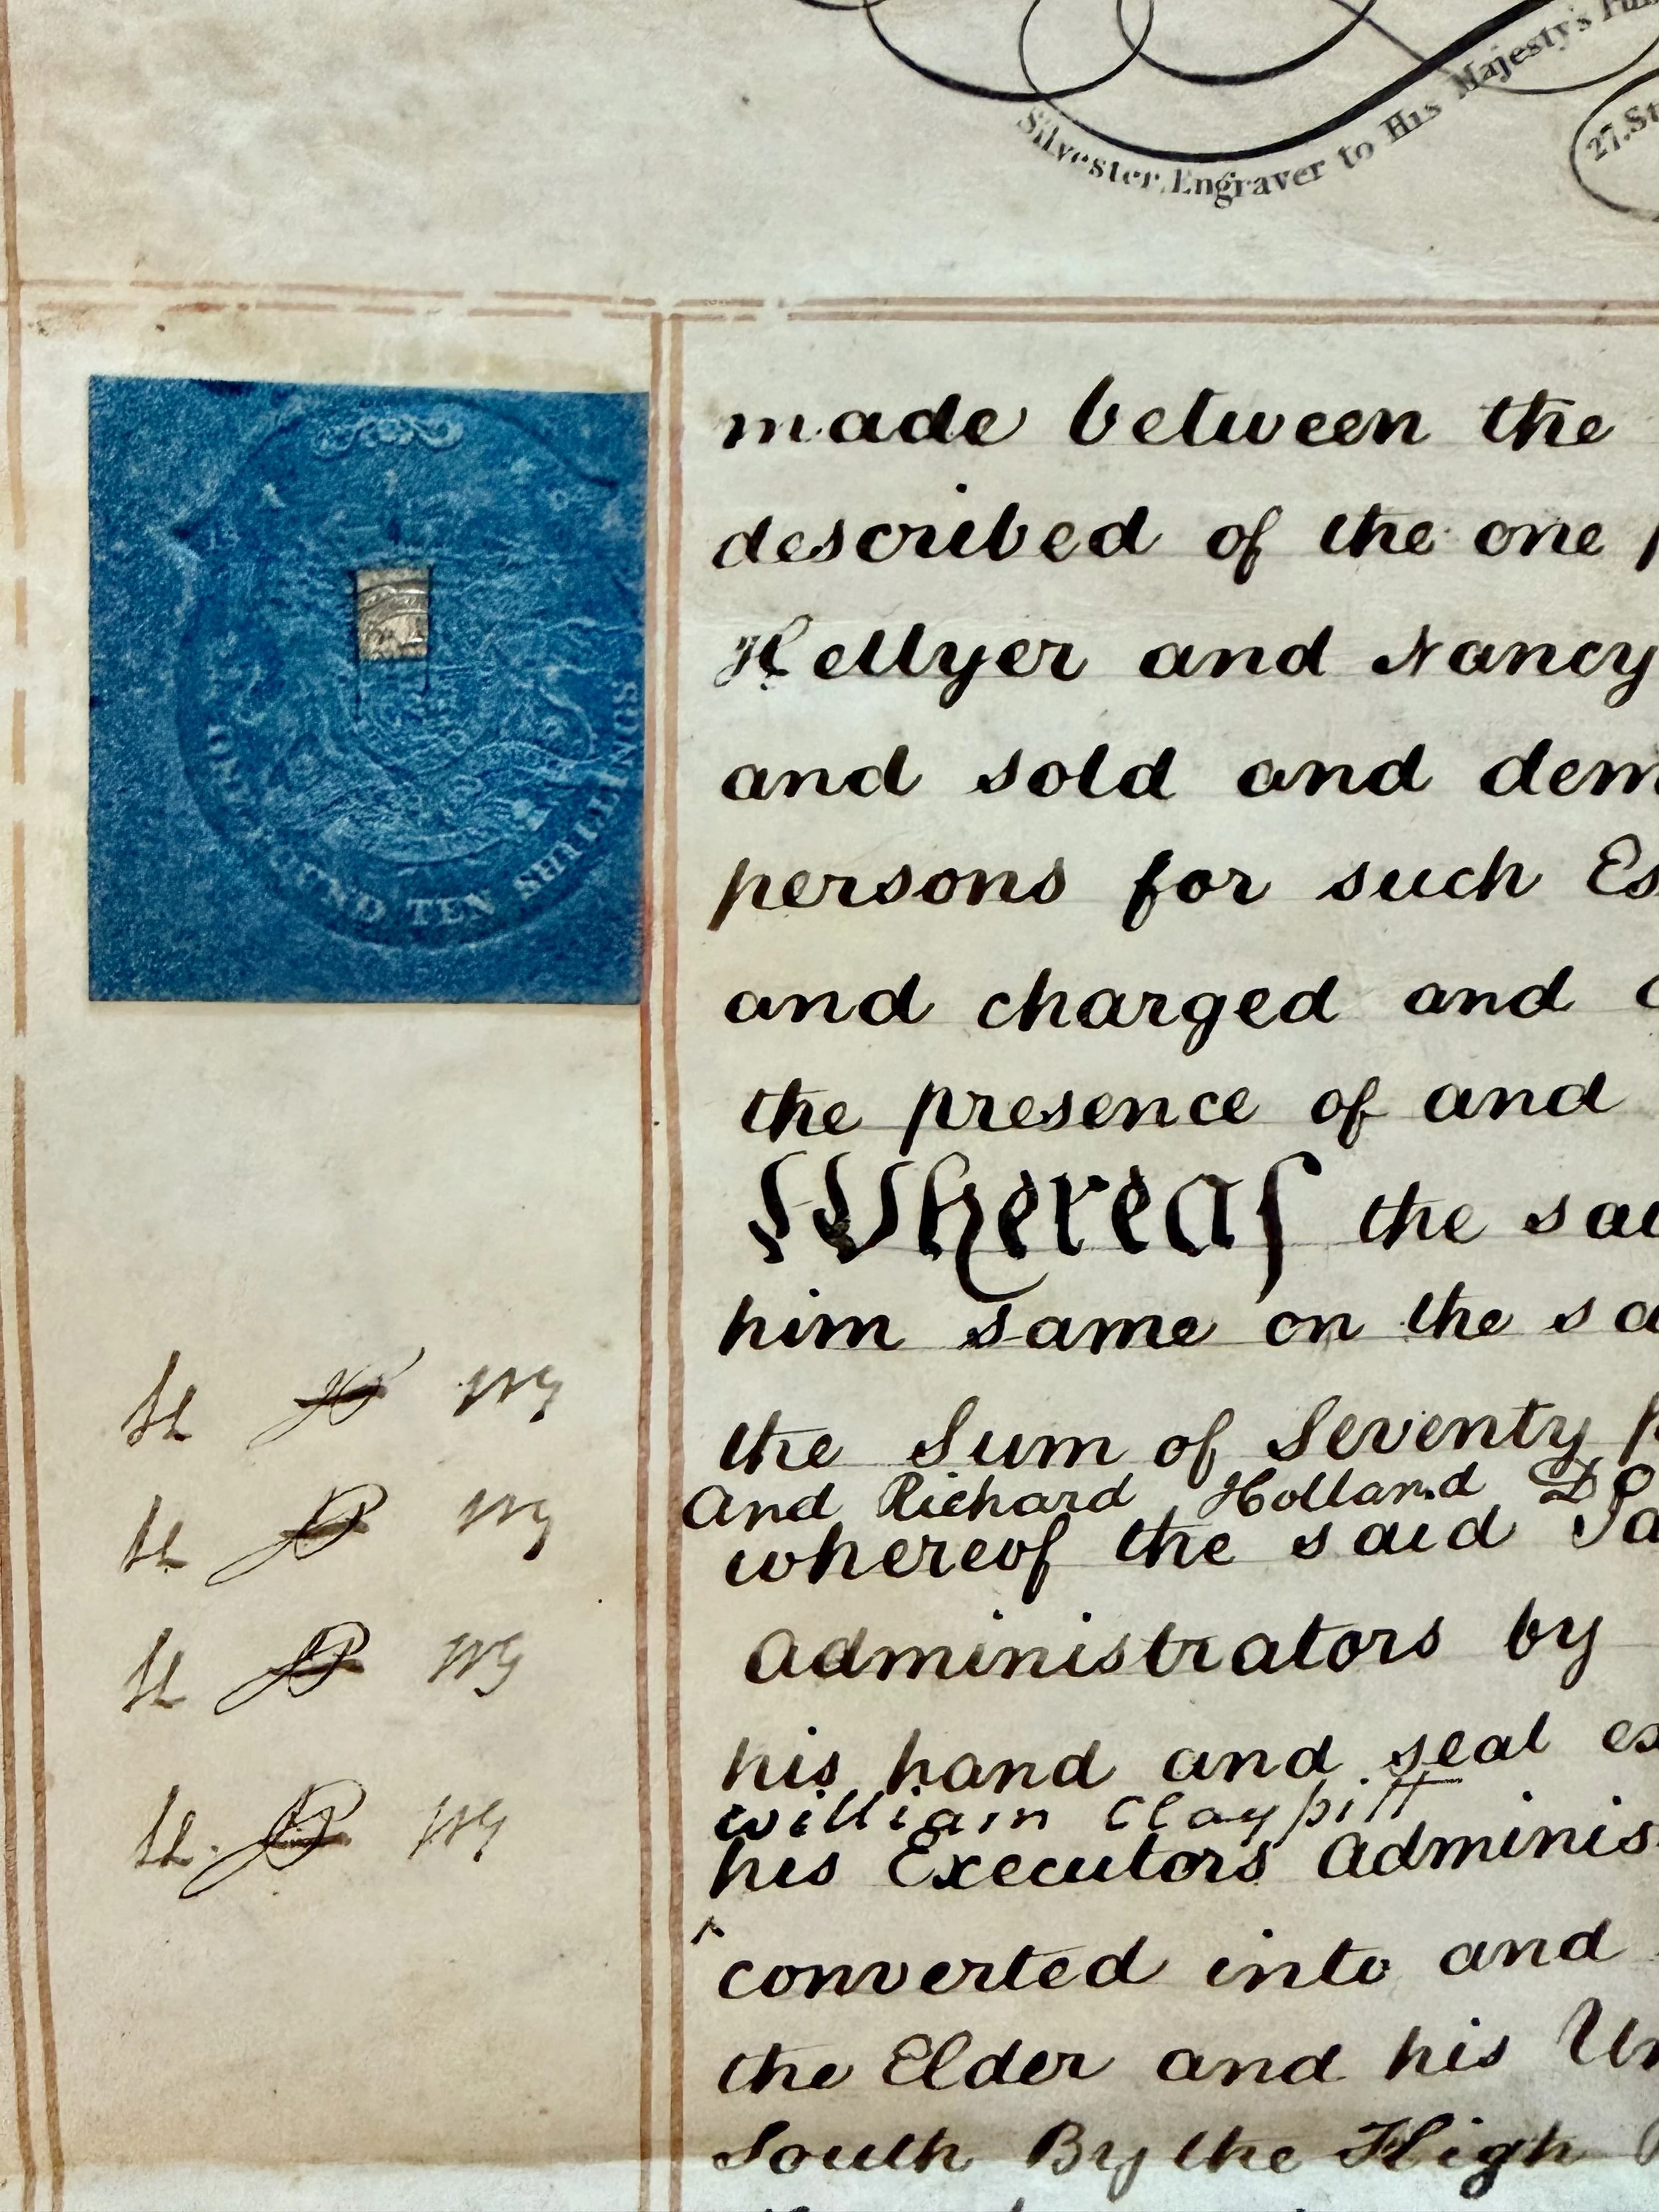 Silvester, Engraver to His Majesty's
27. St
POUND TEN SHILLINGS
made between the
described of the one
Hellyer and Nancy
and sold and dem
persons for such Es
and charged and
the presence of and
Whereas the sai
him same on the sa
the Sum of Seventy p
And Richard Holland Do
whereof the said Ja
Administrators by
his hand and seal ex
William Claypitt
his Executors Adminis
^
converted into and
the Elder and his Un
South By the High